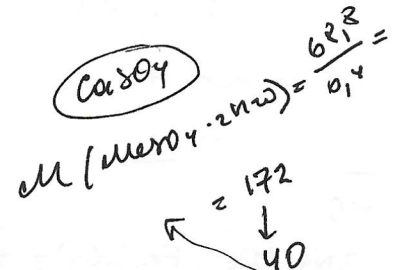 CaSO4
M(MeSO4·2H2O) = 68,8/0,4 =
= 172
↓
40